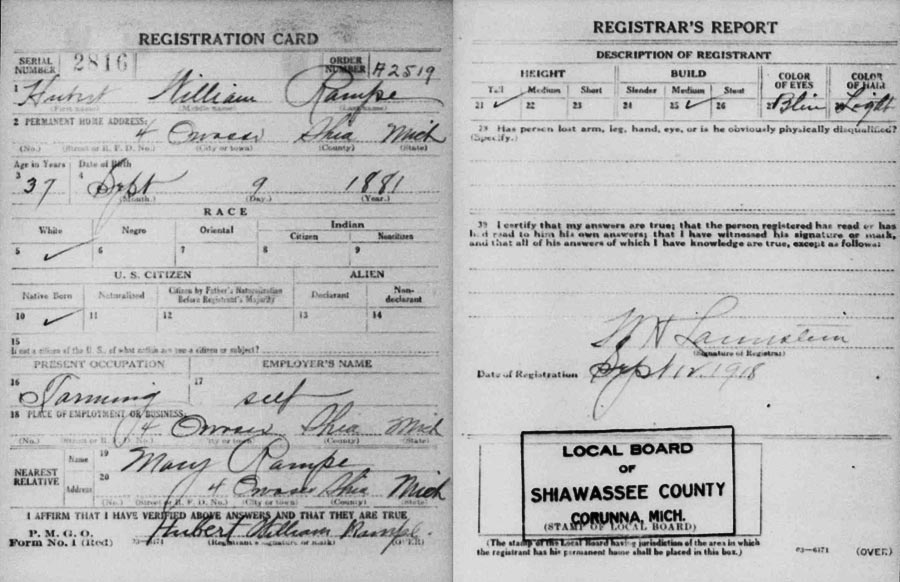 REGISTRATION CARD
SERIAL NUMBER 2816 ORDER NUMBER A2519
1 Hubert William Rampe
(First name) (Middle name) (Last name)
2 PERMANENT HOME ADDRESS:
4 Owosso Shia Mich
(No.) (Street or R. F. D. No.) (City or town) (County) (State)
Age in Years Date of Birth
3 37 4 Sept 9 1881
(Month.) (Day.) (Year.)
RACE
White Negro Oriental Indian
Citizen Noncitizen
5 ✓ 6 7 8 9
U. S. CITIZEN ALIEN
Native Born Naturalized Citizen by Father's Naturalization Before Registrant's Majority Declarant Non-declarant
10 ✓ 11 12 13 14
15
If not a citizen of the U. S., of what nation are you a citizen or subject?
PRESENT OCCUPATION EMPLOYER'S NAME
16 Farming 17 self
18 PLACE OF EMPLOYMENT OR BUSINESS:
4 Owosso Shia Mich
(No.) (Street or R. F. D. No.) (City or town) (County) (State)
NEAREST RELATIVE
Name 19 Mary Rampe
Address 20 4 Owosso Shia Mich
(No.) (Street or R. F. D. No.) (City or town) (County) (State)
I AFFIRM THAT I HAVE VERIFIED ABOVE ANSWERS AND THAT THEY ARE TRUE
P. M. G. O.
Form No. 1 (Red) 03—6171 Hubert William Rampe
(Registrant's signature or mark) (OVER)
REGISTRAR'S REPORT
DESCRIPTION OF REGISTRANT
HEIGHT BUILD COLOR OF EYES COLOR OF HAIR
Tall Medium Short Slender Medium Stout
21 ✓ 22 23 24 25 ✓ 26 27 Blue Light
29 Has person lost arm, leg, hand, eye, or is he obviously physically disqualified?
(Specify.)
30 I certify that my answers are true; that the person registered has read or has
had read to him his own answers; that I have witnessed his signature or mark,
and that all of his answers of which I have knowledge are true, except as follows:
(Signature of Registrar)
Date of Registration Sept 12 1918
LOCAL BOARD
OF
SHIAWASSEE COUNTY
CORUNNA, MICH.
(STAMP OF LOCAL BOARD)
(The stamp of the Local Board having jurisdiction of the area in which
the registrant has his permanent home shall be placed in this box.)
03—6171 (OVER)